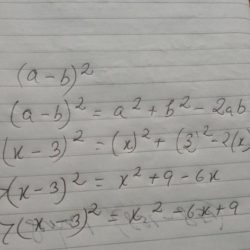 (a-b)²
(a-b)² = a² + b² - 2ab
(x-3)² = (x)² + (3)² - 2(x)
(x-3)² = x² + 9 - 6x
(x-3)² = x² - 6x + 9